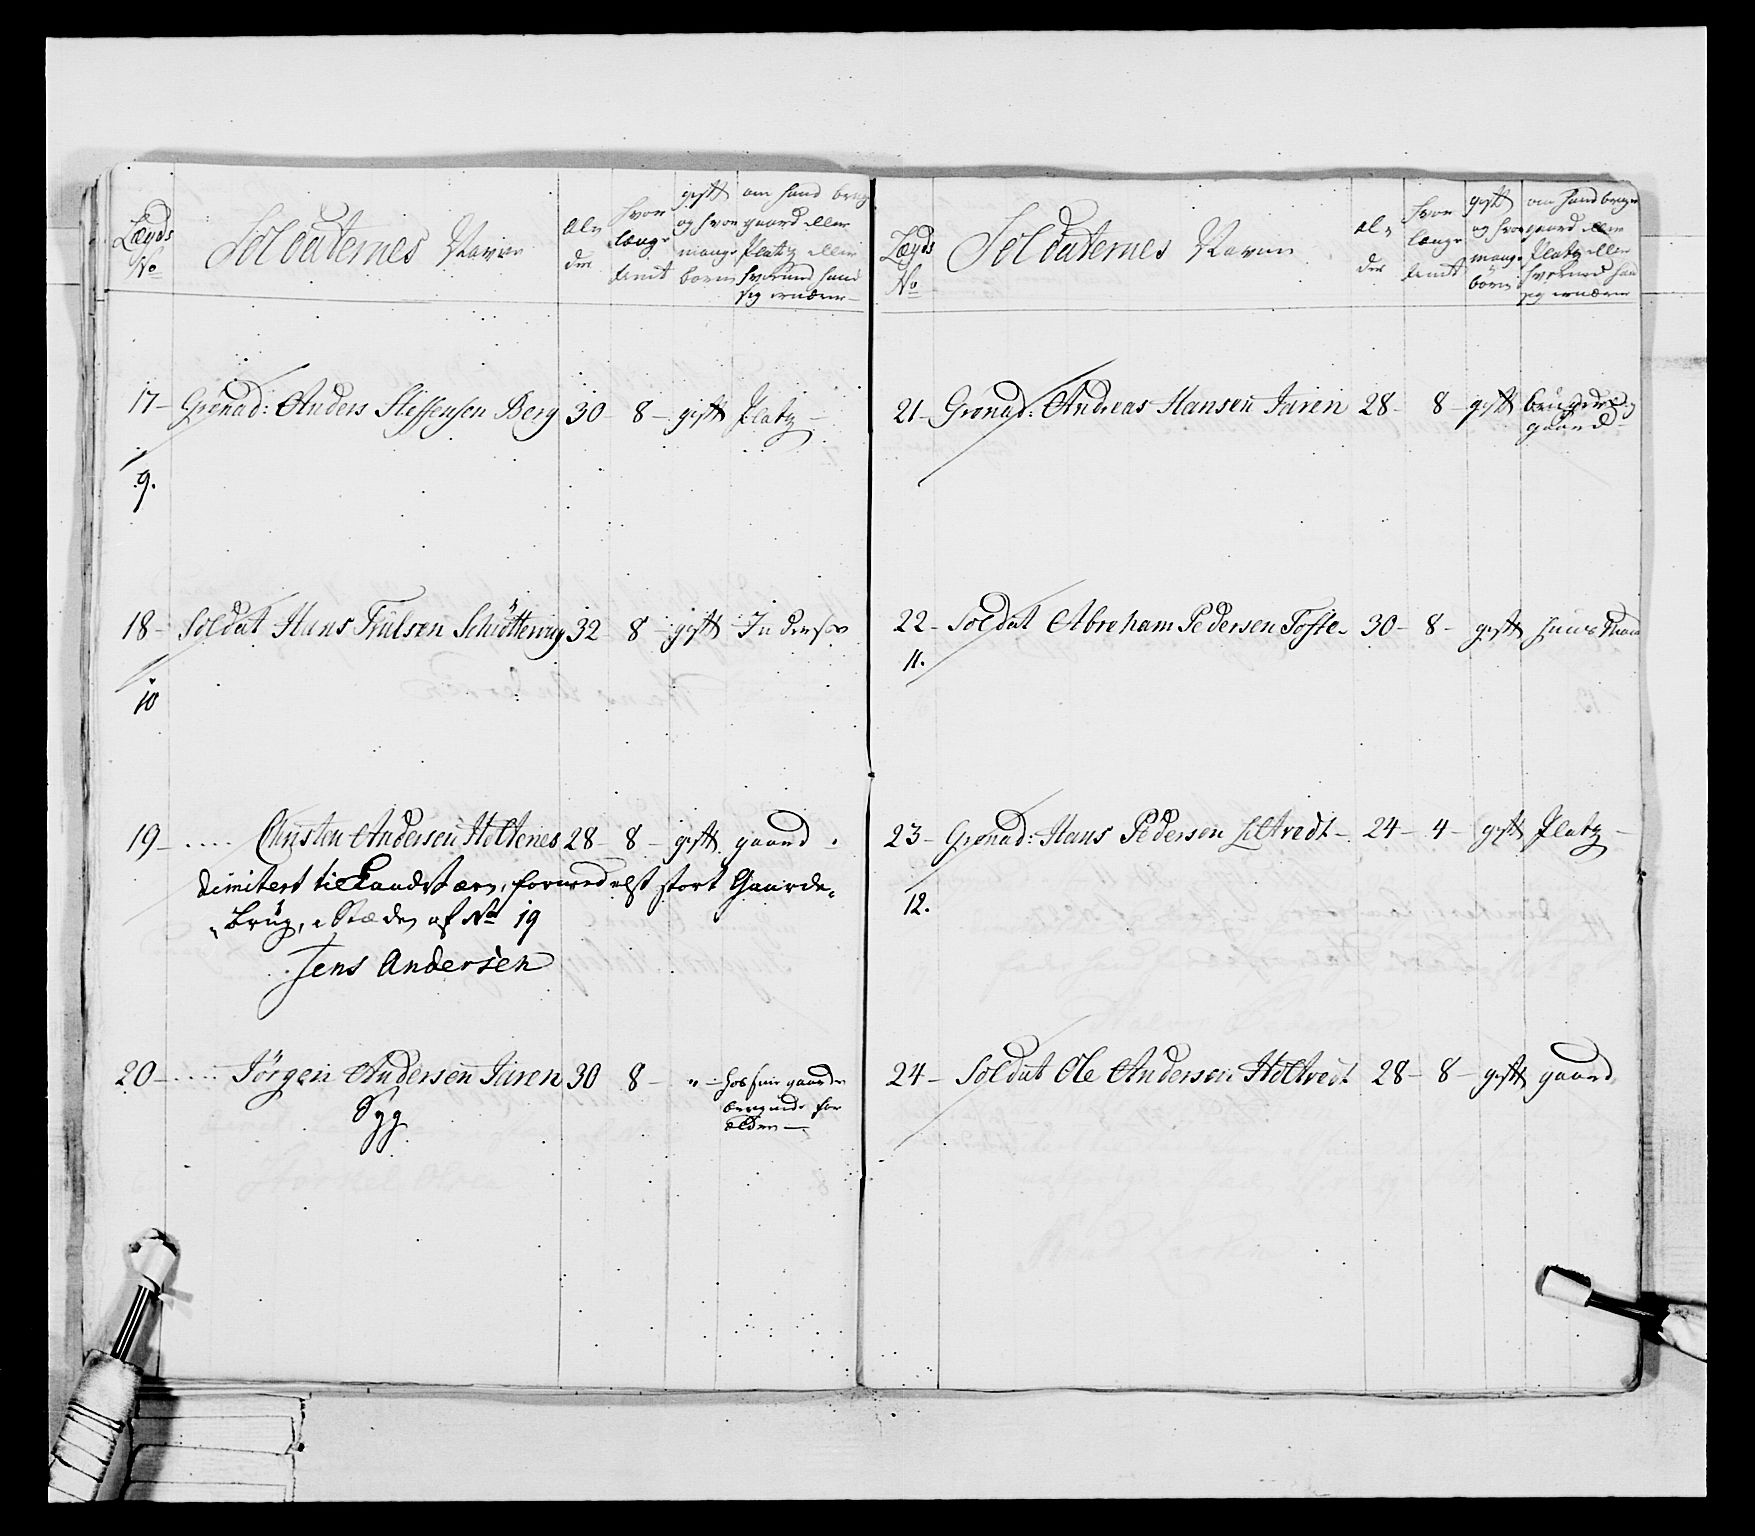 Lægds No
Soldaternes Navne
Alder
hvor længe tient
gift og hvor mange børn
om hand brug gaard eller Platz eller hvormed hand sig ernærer
17 – Grenad: Anders Steffensen Berg 30 – 8 – gift Platz –
9.
18 – Soldat Hans Trulsen 32 8 – gift Inderst
10
19 – .... Christen Andersen Holtenes 28 – 8 – gift gaard
dimitert til Landværn, formedelst stort Gaards-
Brug, i Stæden af No 19
Jens Andersen
20 – .... Jørgen Andersen Jaren 30 8 – " – hos sine gaard
brugende for
ældre –
Syg
Lægds No
Soldaternes Navne
Alder
hvor længe tient
gift og hvor mange børn
om hand bruger gaard eller Platz eller hvormed hand sig ernærer
21 – Grenad: Andreas Hansen Jaren 28 – 8 – gift
gaard
22 – Soldat Abraham Pedersen Tofte – 30 – 8 – gift huusmand
11.
23 – Grenad: Hans Pedersen – 24 – 4 – gift Platz –
12.
24 – Soldat Ole Andersen Holtvedt 28 – 8 – gift gaard